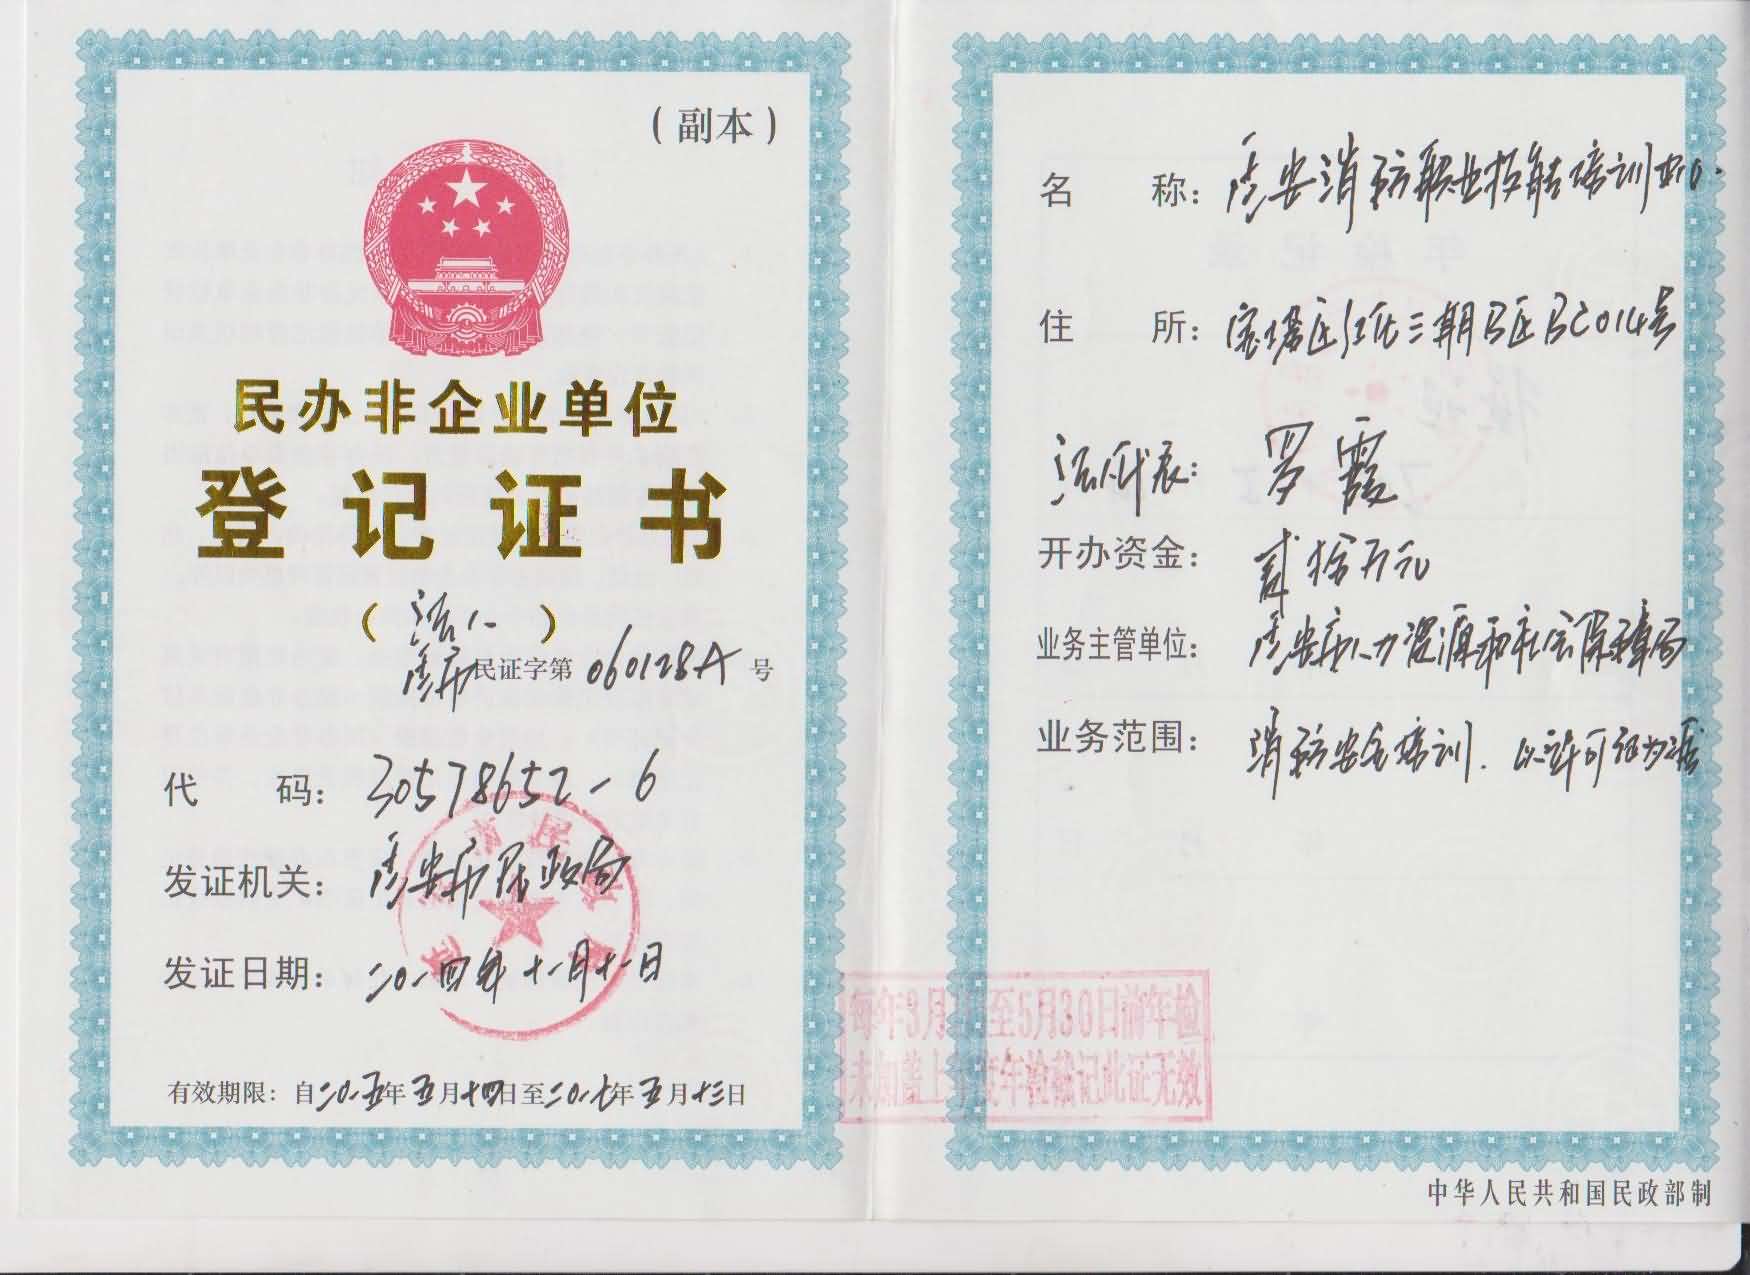 （副本）
民办非企业单位
登记证书
（法人）
延市民证字第060128A号
代 码：30578652-6
发证机关：延安市民政局
发证日期：二〇一四年十一月十一日
有效期限：自二〇一五年五月十四日至二〇一七年五月十三日
名 称：延安消防职业技能培训中心
住 所：宝塔区红化三期B区BC014号
法人代表：罗霞
开办资金：贰拾万元
业务主管单位：延安市人力资源和社会保障局
业务范围：消防安全培训、以许可证为准
每年3月1日至5月30日前年检
未加盖上年度年检戳记此证无效
中华人民共和国民政部制